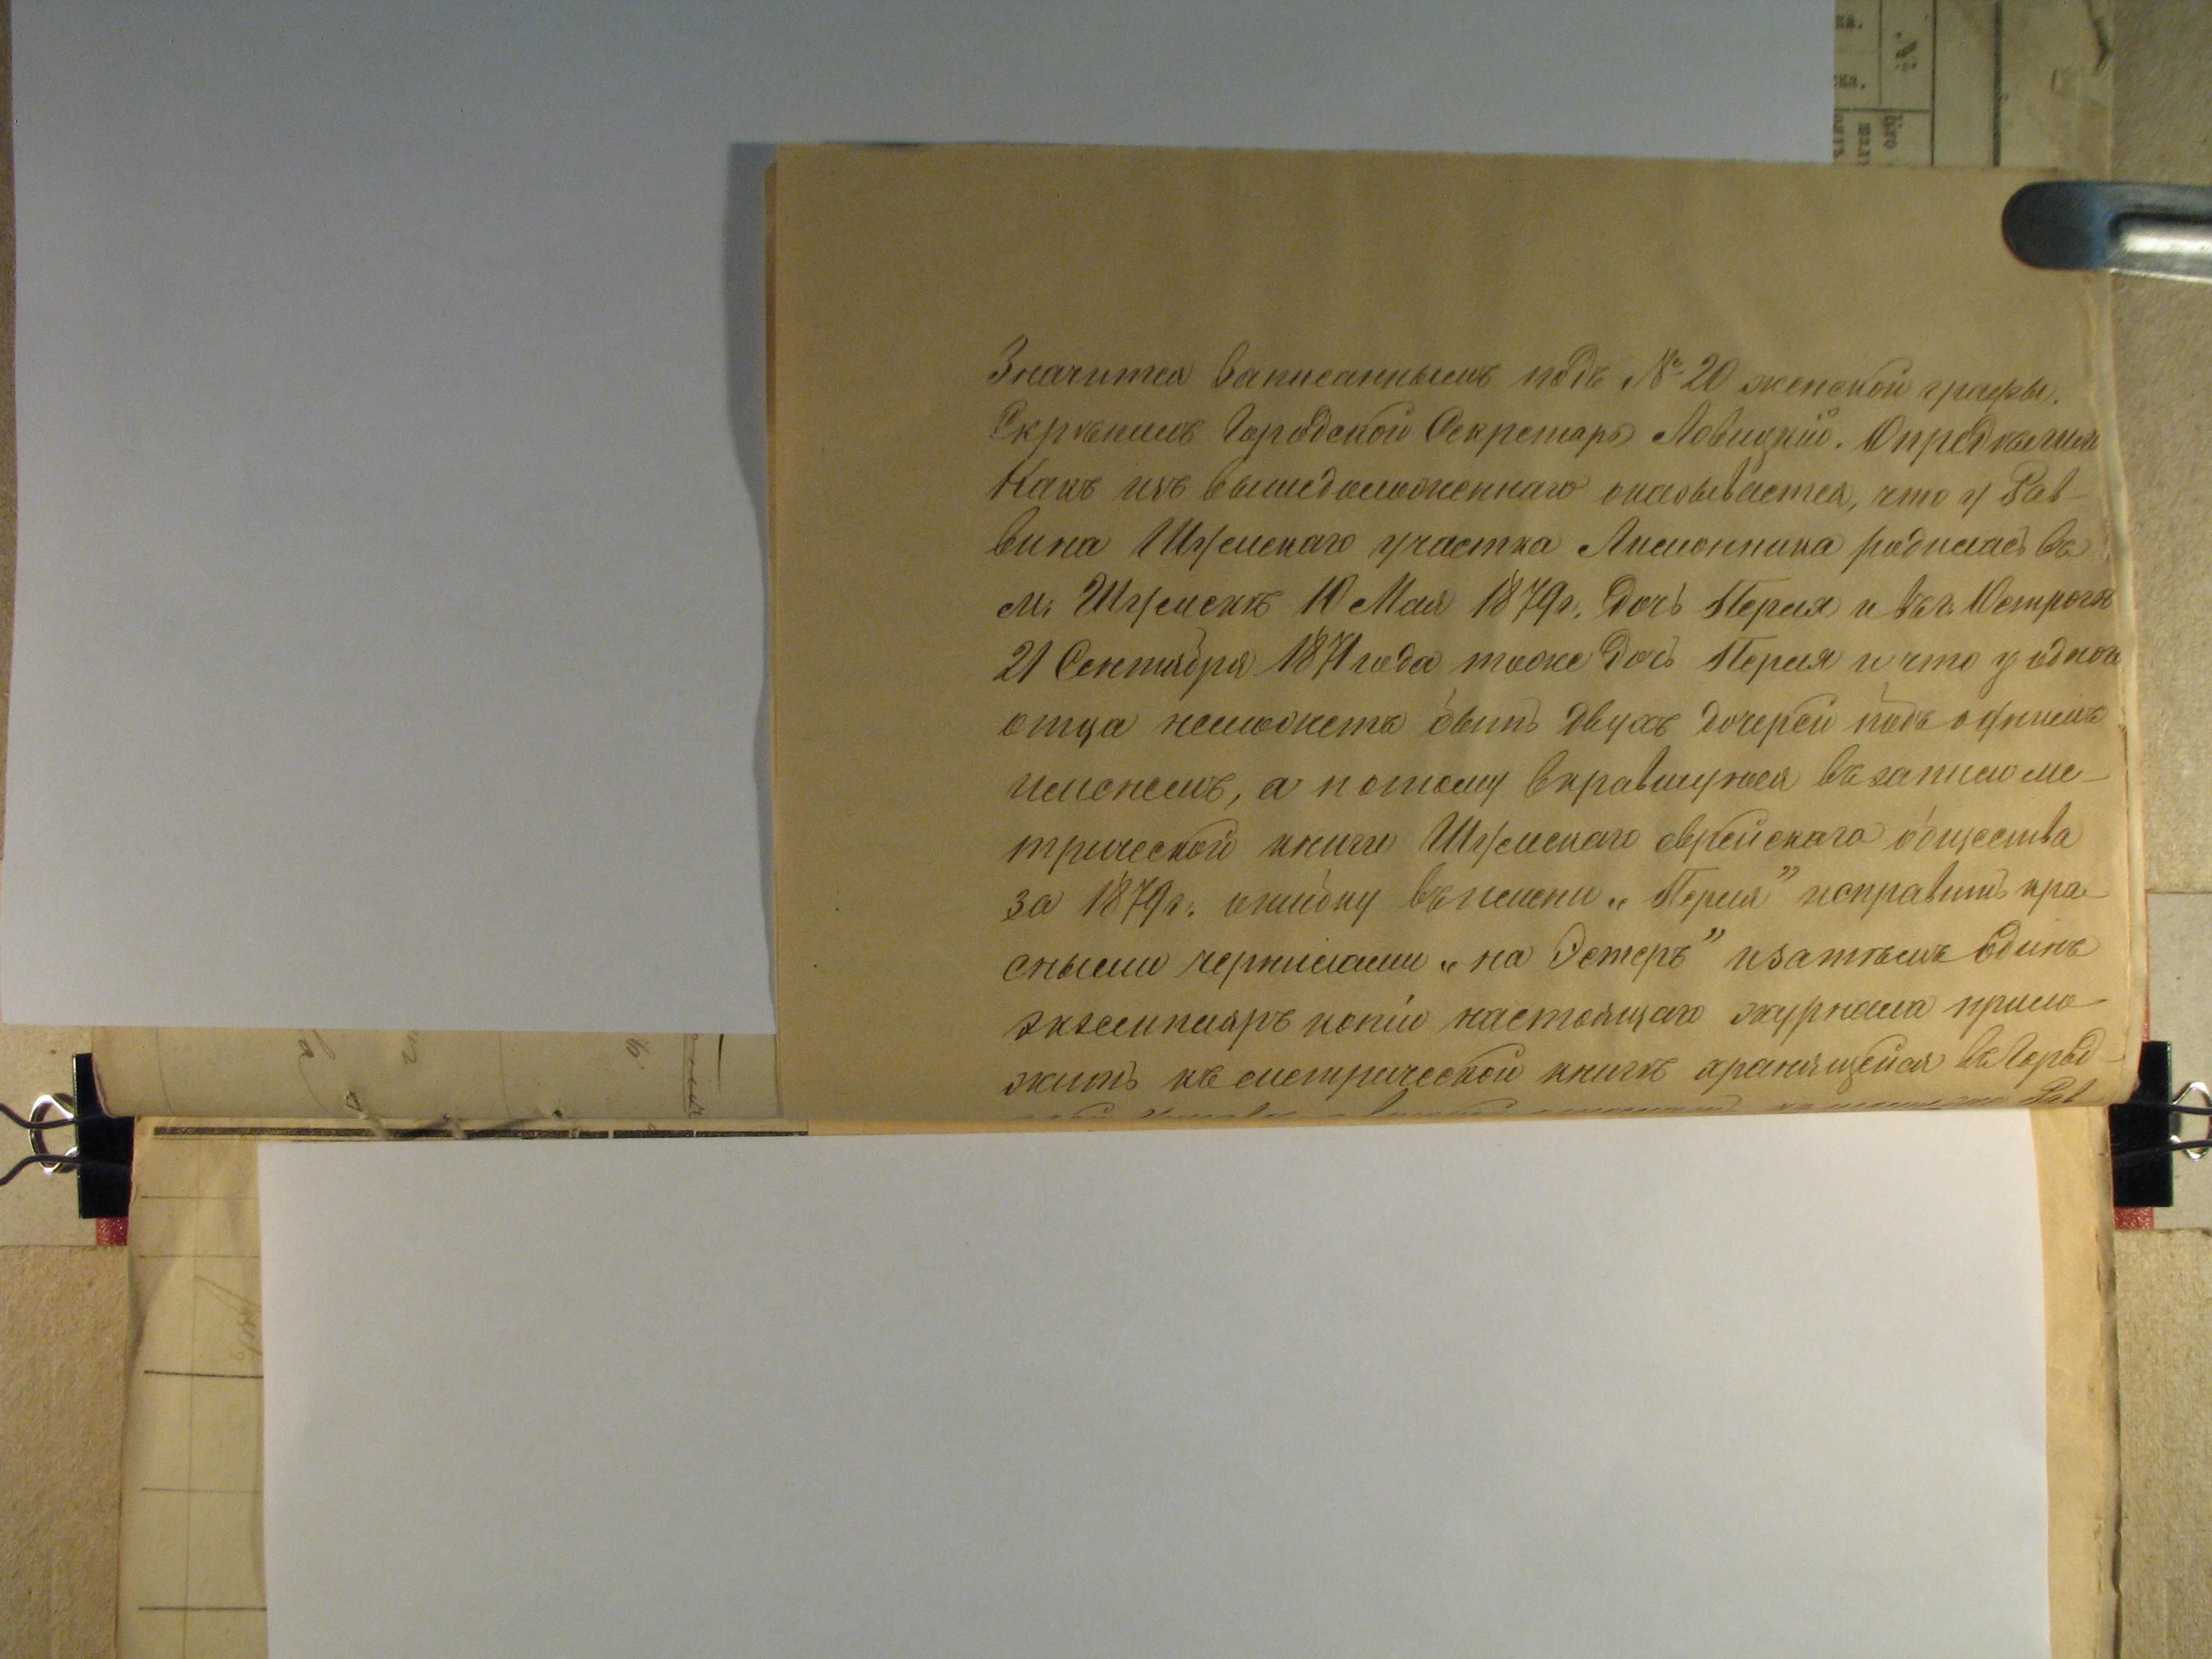 Значится записаннымъ подъ № 20 женской графы.
Скрѣпилъ Городской Секретарь Ловицкій. Опредѣлили
Какъ изъ вышедоложеннаго оказывается, что у Рав-
вина Шумскаго участка Лисонника родилась въ
м. Шумскѣ 10 Мая 1879 г. дочь Перля и въ г. Острогѣ
21 Сентября 1871 года тоже дочь Перля и что у одного
отца неможетъ быть двухъ дочерей подъ однимъ
именемъ, а потому вкравшуюся въ записи ме-
трической книги Шумскаго еврейскаго общества
за 1879 г. ошибку въ имени „Перля” исправить кра-
сными чернилами „на Эстеръ” и затѣмъ одинъ
экземпляръ копіи настоящаго журнала прило-
жить къ метрической книгѣ хранящейся въ Город-
Рав
№